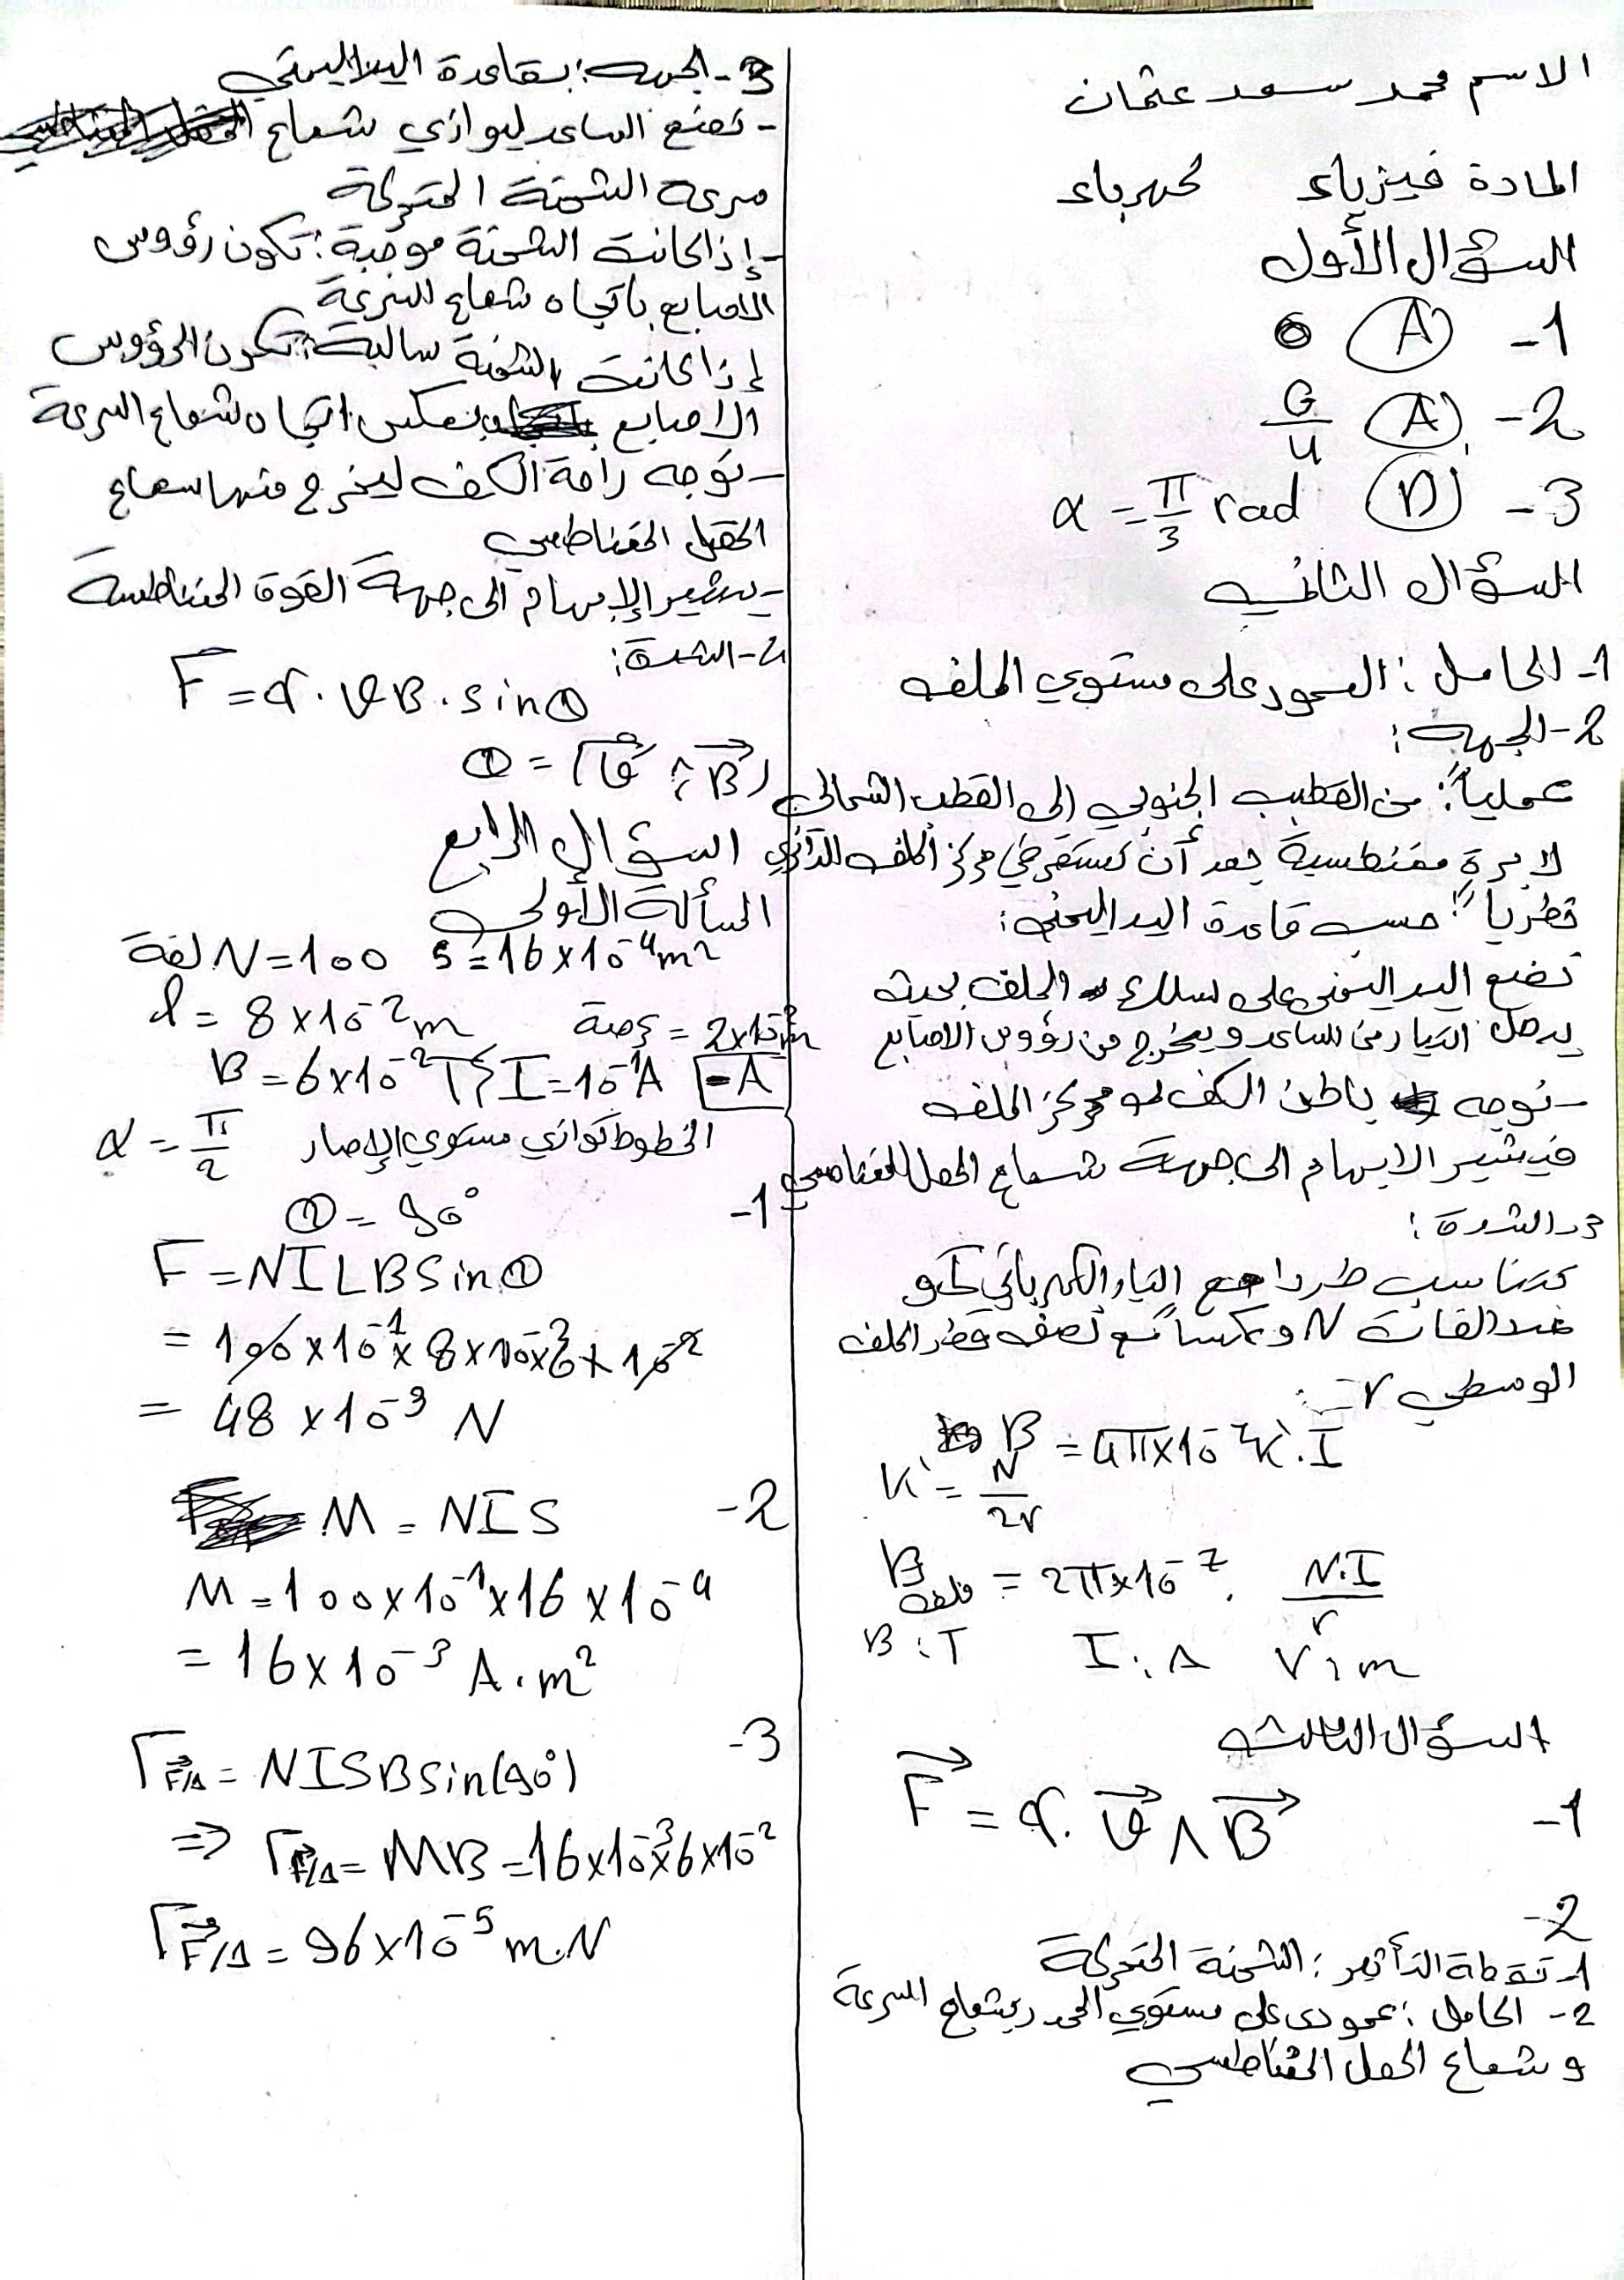 الاسم محمد سعد عثمان
المادة فيزياء كهرباء
السؤال الأول
1- A 0
2- A G/4
3- D α = π/3 rad
السؤال الثاني
1- الحامل : العمود على مستوي الملف
2- الجهة :
عملياً : من القطب الجنوبي إلى القطب الشمالي
لابرة مغنطسية بعد أن تستقر في مركز الملف الدائري
نظرياً : حسب قاعدة اليد اليمنى :
نضع اليد اليمنى على سلك الملف بحيث
يدخل التيار من الساعد ويخرج من رؤوس الاصابع
- نوجه باطن الكف نحو مركز الملف
فيشير الابهام الى جهة شعاع الحقل المغناطسي
3- الشدة :
تتناسب طردا مع التيار الكهربائي I و
عدد الفات N وعكساً مع نصف قطر الملف
الوسطي r :
B = 4π×10⁻⁷ K'. I
K' = N/2r
B ملف = 2π×10⁻⁷ . N.I/r
B : T I : A r : m
السؤال الثالث
1- F⃗ = q. v⃗ ∧ B⃗
2-
1- نقطة التأثير : الشحنة المتحركة
2- الحامل : عمودي على مستوي المحدد بشعاع السرعة
و شعاع الحقل المغناطسي
3- الجهة : بقاعدة اليد اليمنى
- نضع الساعد ليوازي شعاع
سرعة الشحنة المتحركة
- إذا كانت الشحنة موجبة : تكون رؤوس
الاصابع باتجاه شعاع السرعة
إذا كانت الشحنة سالبة : تكون الرؤوس
الاصابع بعكس اتجاه شعاع السرعة
- نوجه راحة الكف ليخرج منها شعاع
الحقل المغناطسي
- يشير الإبهام الى جهة القوة المغناطسية
4- الشدة :
F = q. vB. sin θ
θ = (v⃗ ^, B⃗)
السؤال الرابع
المسألة الأولى
N = 100 لفة S = 16×10⁻⁴ m²
l = 8×10⁻² m = 2×10⁻² m
B = 6×10⁻² T I = 10⁻¹ A A-
الخطوط توازي مستوي الإطار α = π/2
1- θ = 90°
F = NILB sin θ
= 100×10⁻¹×8×10⁻²×6×10⁻²
= 48×10⁻³ N
2- M = NIS
M = 100×10⁻¹×16×10⁻⁴
= 16×10⁻³ A.m²
3- Γ F⃗/Δ = NISB sin(90°)
⇒ Γ F⃗/Δ = MB = 16×10⁻³×6×10⁻²
Γ F⃗/Δ = 96×10⁻⁵ m.N